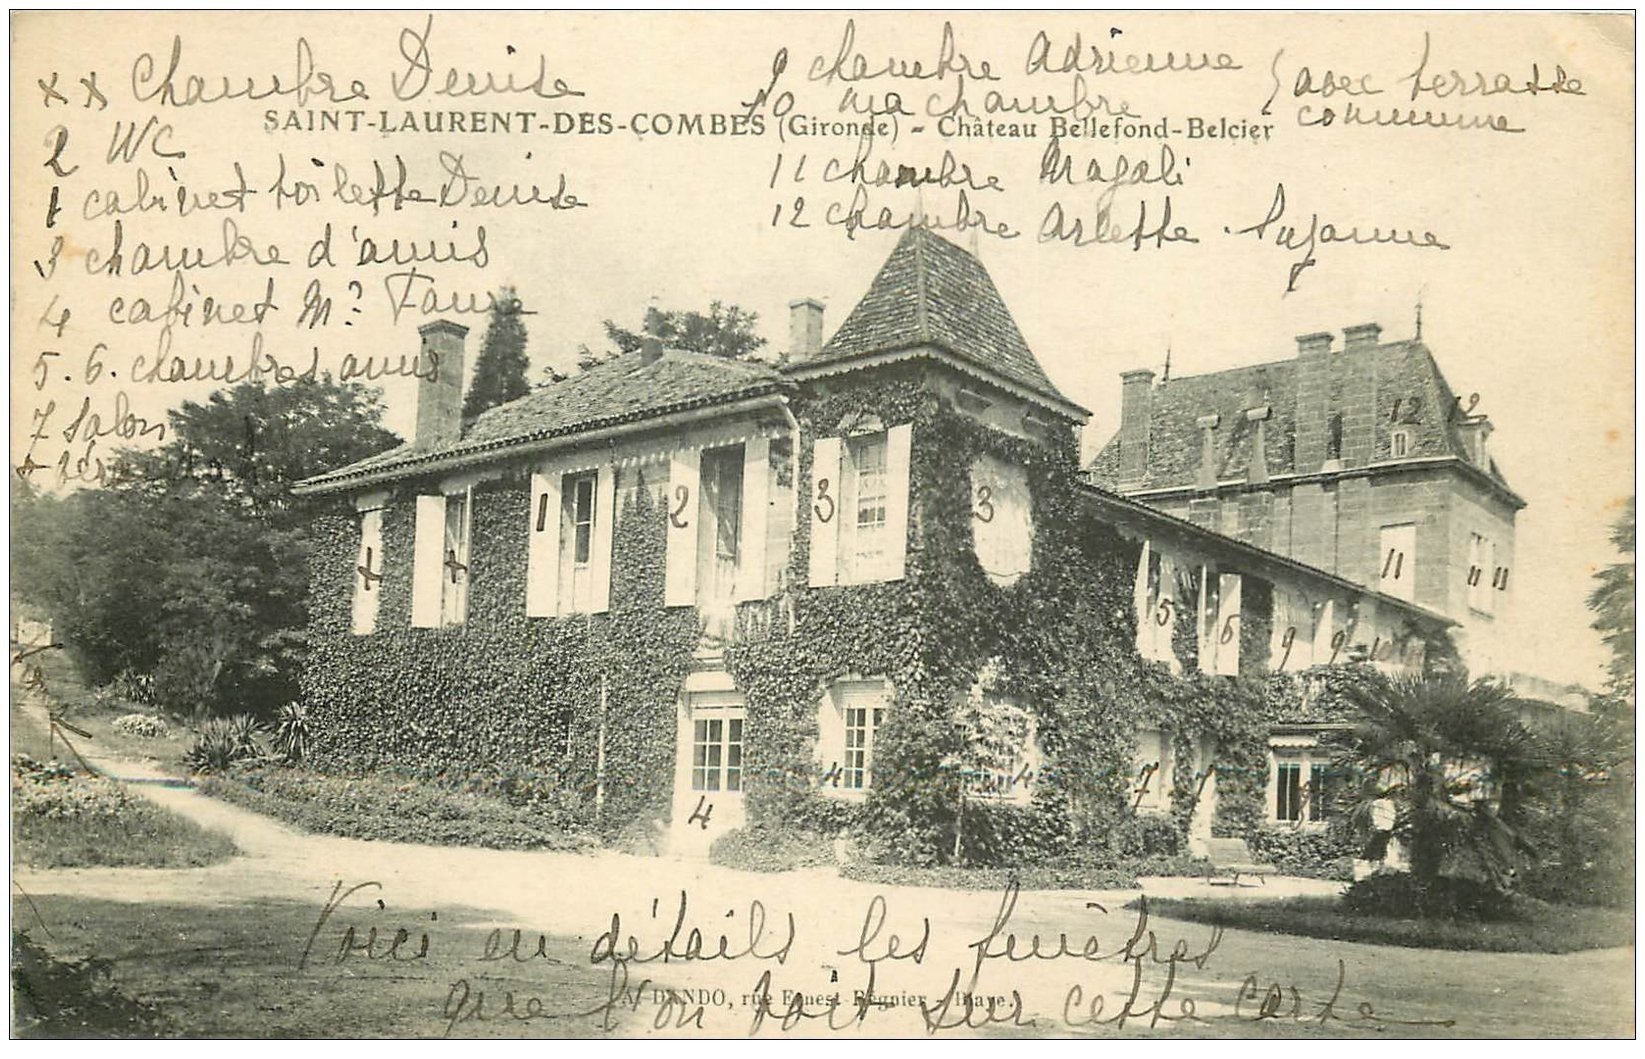 xx Chambre Denise
2 WC
1 cabinet toilette Denise
3 chambre d'amis
4 cabinet Mr Faure
5. 6. chambres amis
7 salon
9 chambre Adrienne
10 ma chambre
avec terrasse
commune
SAINT-LAURENT-DES-COMBES (Gironde) - Château Bellefond-Belcier
11 chambre Magali
12 chambre Arlette. Suzanne
12 12
x x 1 2 3 3
11 11 11
5 6 9 9 10
4 4 4 7 7
Voici en détails les fenêtres
que l'on voit sur cette carte
A. DANDO, rue Ernest Régnier - Blaye.